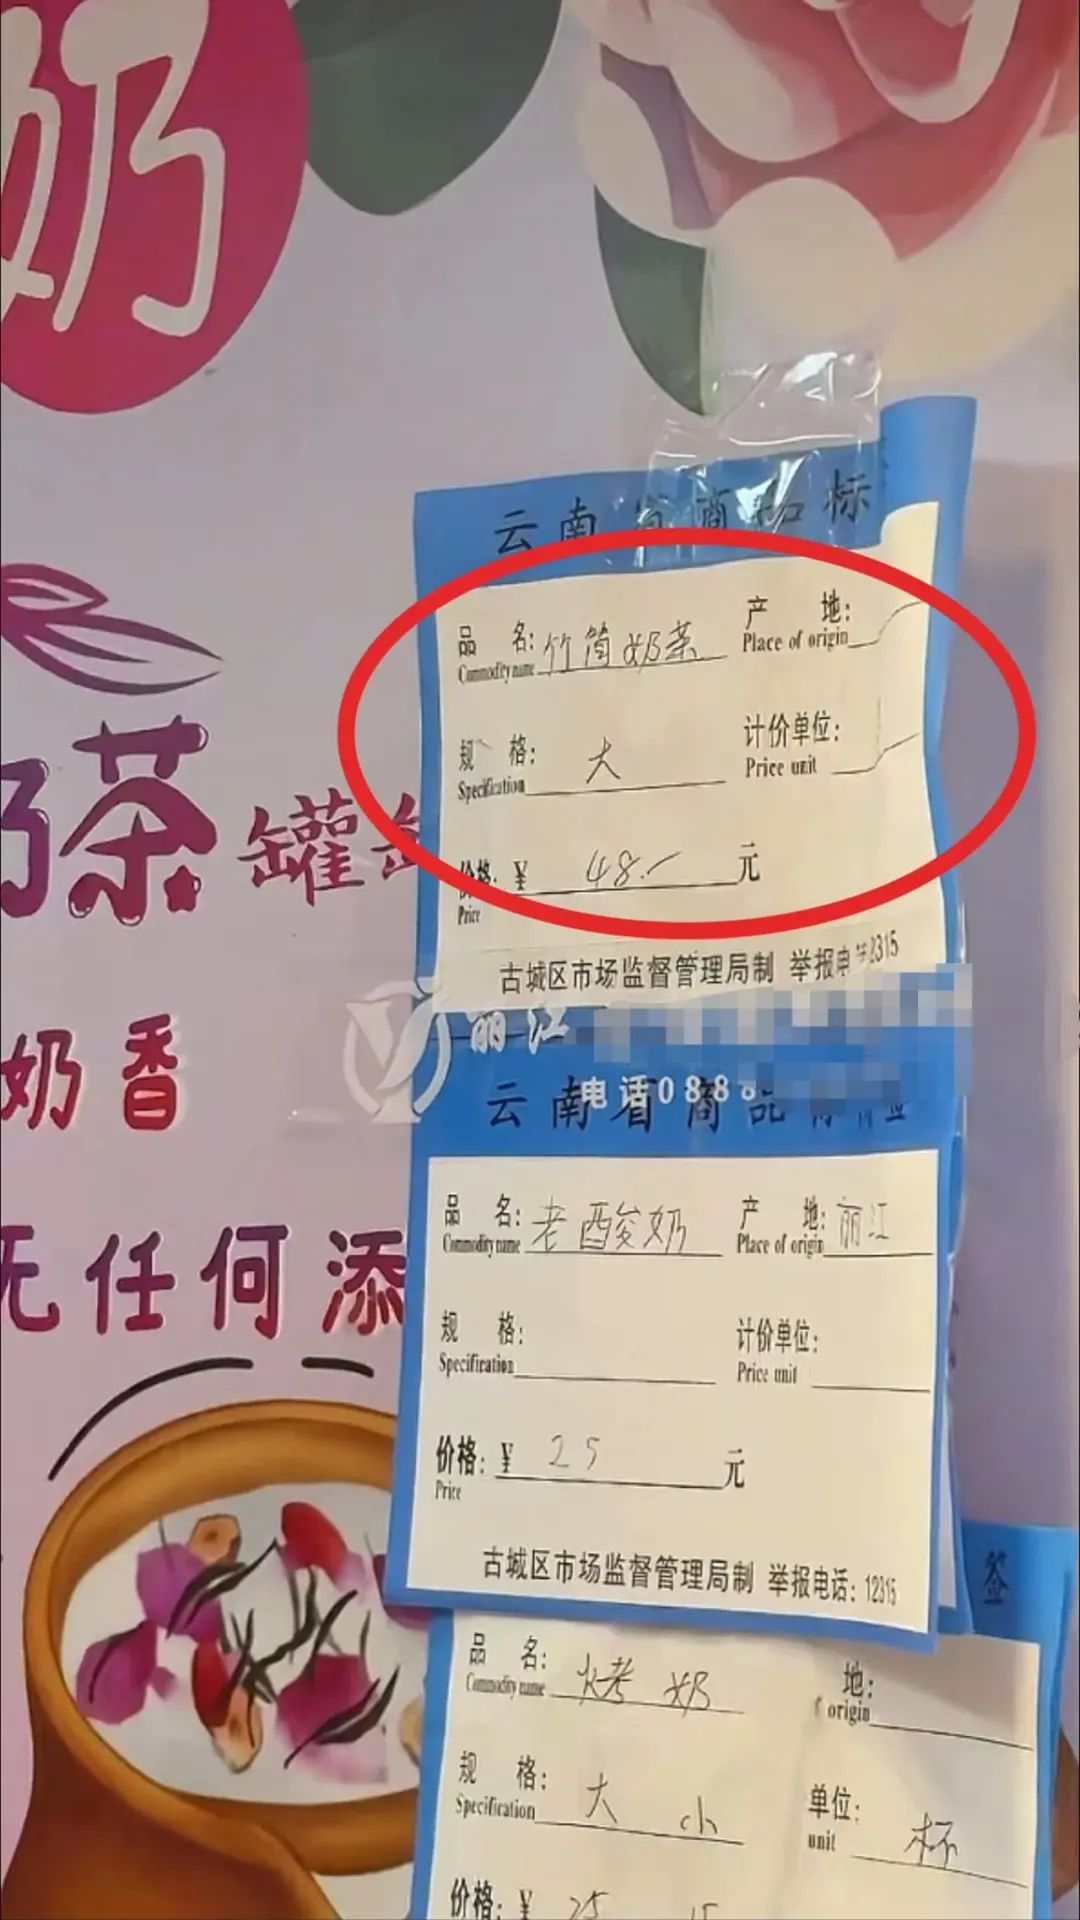 奶
云南省商品标
品 名: 竹筒奶茶 产 地:
Commodity name Place of origin
规 格: 大 计价单位:
Specification Price unit
奶茶 罐罐
价格: ¥ 48.- 元
Price
古城区市场监督管理局制 举报电话2315
丽江
奶香
电话088
云南省商品标价签
品 名: 老酸奶 产 地: 丽江
Commodity name Place of origin
无任何添
规 格: 计价单位:
Specification Price unit
价格: ¥ 25 元
Price
古城区市场监督管理局制 举报电话: 12315
签
品 名: 烤奶 地:
Commodity name f origin
规 格: 大 小 单位: 杯
Specification unit
价格: ¥ 25 15